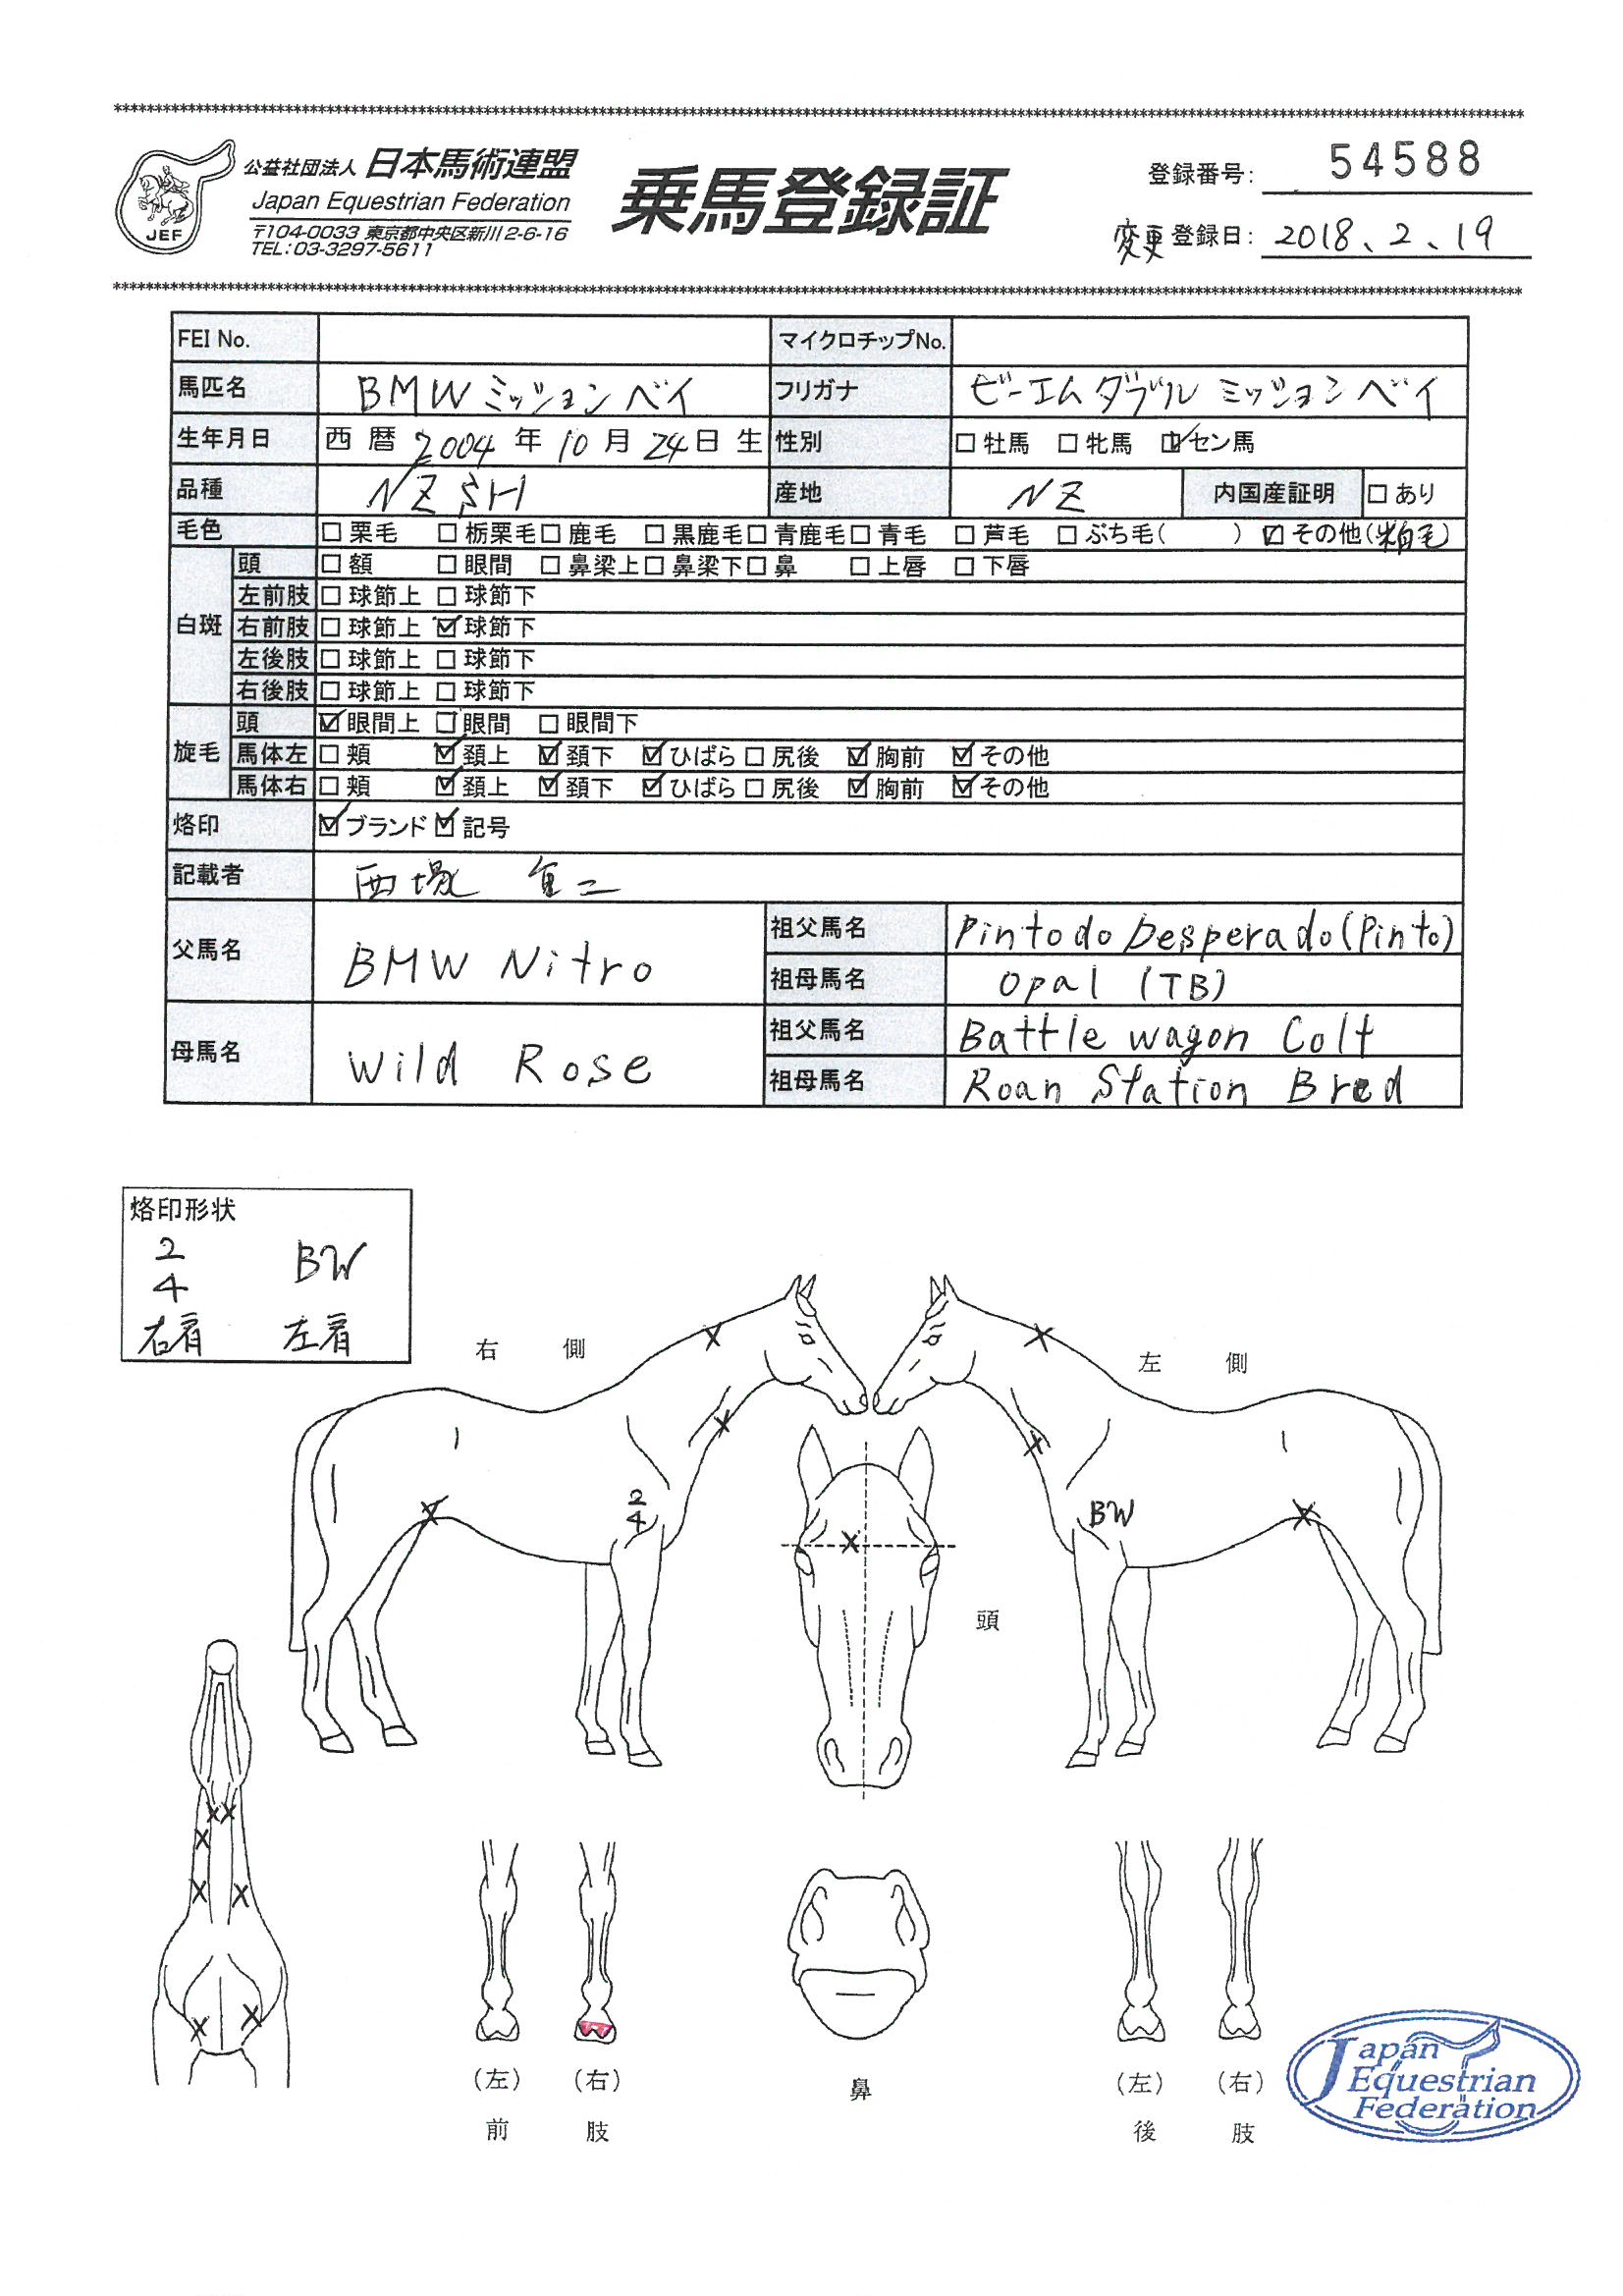 公益社団法人 日本馬術連盟
Japan Equestrian Federation
〒104-0033 東京都中央区新川2-6-16
TEL:03-3297-5611
JEF
乗馬登録証
登録番号: 54588
変更 登録日: 2018、2、19
FEI No. マイクロチップNo.
馬匹名 BMWミッションベイ フリガナ ビーエムダブル ミッションベイ
生年月日 西暦 2004 年 10 月 24 日 生 性別 □ 牡馬 □ 牝馬 ☑ セン馬
品種 NZSH 産地 NZ 内国産証明 □ あり
毛色 □ 栗毛 □ 栃栗毛 □ 鹿毛 □ 黒鹿毛 □ 青鹿毛 □ 青毛 □ 芦毛 □ ぶち毛( ) ☑ その他(粕毛)
白斑
頭 □ 額 □ 眼間 □ 鼻梁上 □ 鼻梁下 □ 鼻 □ 上唇 □ 下唇
左前肢 □ 球節上 □ 球節下
右前肢 □ 球節上 ☑ 球節下
左後肢 □ 球節上 □ 球節下
右後肢 □ 球節上 □ 球節下
旋毛
頭 ☑ 眼間上 □ 眼間 □ 眼間下
馬体左 □ 頬 ☑ 頚上 ☑ 頚下 ☑ ひばら □ 尻後 ☑ 胸前 ☑ その他
馬体右 □ 頬 ☑ 頚上 ☑ 頚下 ☑ ひばら □ 尻後 ☑ 胸前 ☑ その他
烙印 ☑ ブランド ☑ 記号
記載者 西塚
父馬名 BMW Nitro
祖父馬名 Pintado Desperado(Pinto)
祖母馬名 Opal (TB)
母馬名 Wild Rose
祖父馬名 Battle wagon Colt
祖母馬名 Roan Station Bred
烙印形状
2 BW
4
右肩 左肩
右側
左側
2
4
BW
頭
(左) (右)
前肢
鼻
(左) (右)
後肢
Japan
Equestrian
Federation